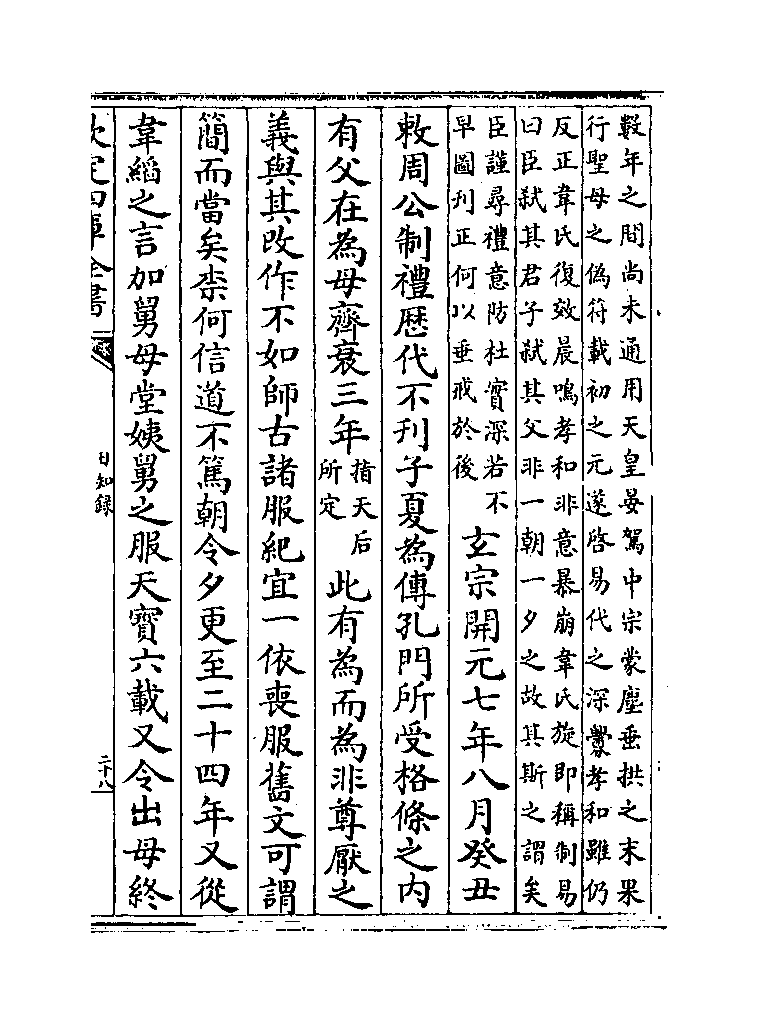 數年之間尚未通用天皇晏駕中宗蒙塵垂拱之末果
行聖母之偽符載初之元遂啓易代之深釁孝和雖仍
反正韋氏復效晨鳴孝和非意暴崩韋氏旋即稱制易
曰臣弑其君子弑其父非一朝一夕之故其斯之謂矣
臣謹尋禮意防杜實深若不
早圖刋正何以垂戒於後
玄宗開元七年八月癸丑
敕周公制禮歴代不刋子夏為傳孔門所受格條之内
有父在為母齊衰三年指天后所定此有為而為非尊厭之
義與其改作不如師古諸服紀宜一依喪服舊文可謂
簡而當矣柰何信道不篤朝令夕更至二十四年又從
韋縚之言加舅母堂姨舅之服天寶六載又令出母終
欽定四庫全書
日知録
二十八